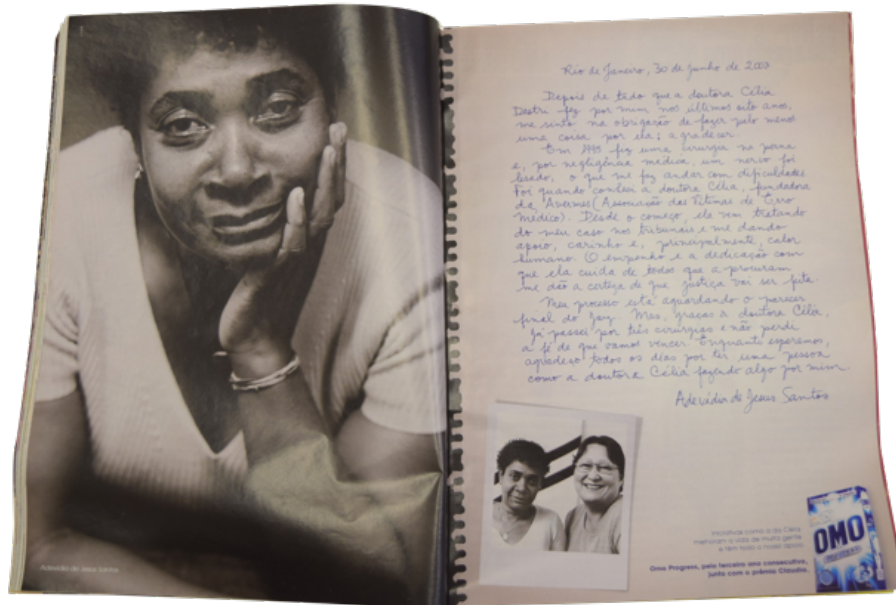 Adevidia de Jesus Santos
Rio de Janeiro, 30 de junho de 2003
Depois de tudo que a doutora Célia
Destri fez por mim nos últimos oito anos,
me sinto na obrigação de fazer pelo menos
uma coisa por ela: agradecer.
Em 1995 fiz uma cirurgia na perna
e, por negligência médica, um nervo foi
lesado, o que me fez andar com dificuldades
Foi quando conheci a doutora Célia, fundadora
da Avermes (Associação das Vítimas de Erro
Médico). Desde o começo, ela vem tratando
do meu caso nos tribunais e me dando
apoio, carinho e, principalmente, calor
humano. O empenho e a dedicação com
que ela cuida de todos que a procuram
me dão a certeza de que justiça vai ser feita.
Meu processo está aguardando o parecer
final do juiz. Mas, graças a doutora Célia,
já passei por três cirurgias e não perdi
a fé de que vamos vencer. Enquanto esperamos,
agradeço todos os dias por ter uma pessoa
como a doutora Célia fazendo algo por mim.
Adevidia de Jesus Santos
Iniciativas como a da Célia,
melhoram a vida de muita gente
e têm todo o nosso apoio.
Omo Progress, pelo terceiro ano consecutivo,
junto com o prêmio Claudia.
OMO